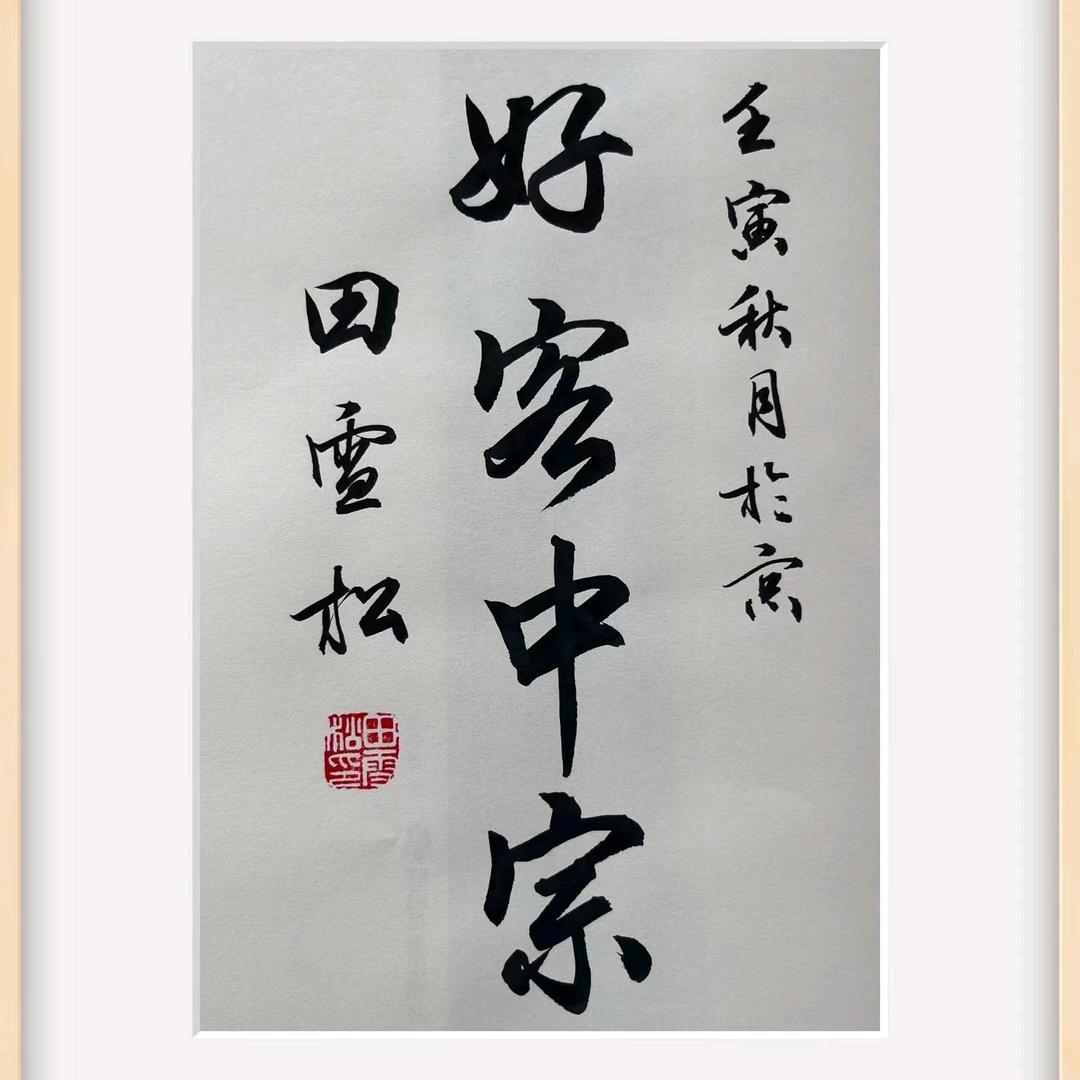 壬寅秋月於京
好客中宗
田雪松
田雪松印